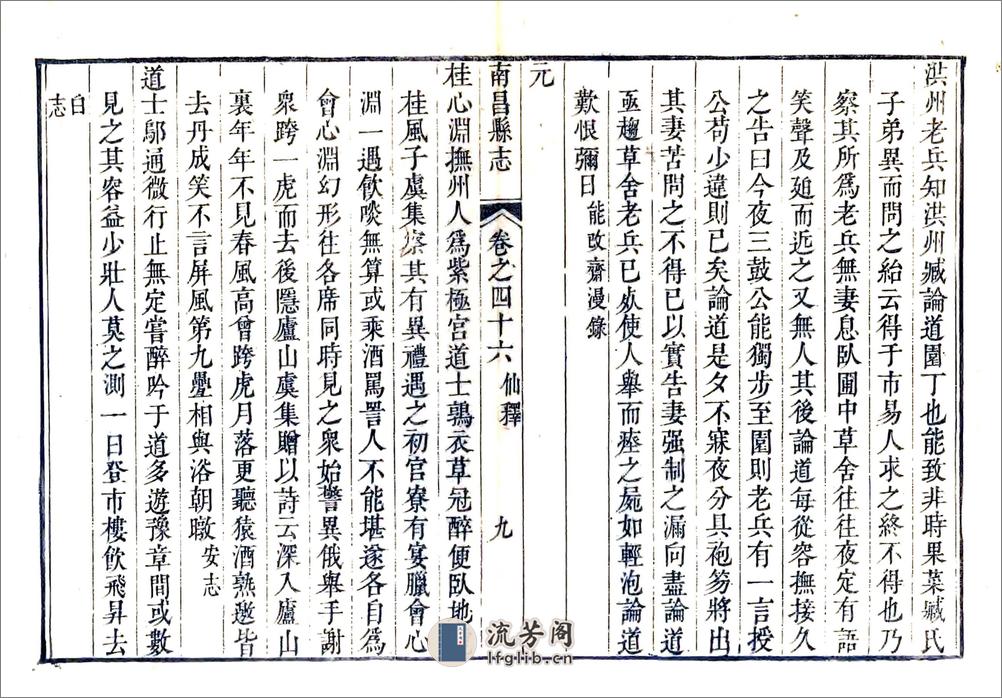 洪州老兵知洪州臧論道園丁也能致非時果菜臧氏
子弟異而問之紿云得于市易人求之終不得也乃
察其所爲老兵無妻息臥圃中草舍往往夜定有語
笑聲及廹而近之又無人其後論道每從容撫接久
之告曰今夜三鼓公能獨步至園則老兵有一言授
公苟少違則已矣論道是夕不寐夜分具袍笏將出
其妻苦問之不得已以實告妻强制之漏向盡論道
亟趨草舍老兵已㱙使人舉而瘞之屍如輕泡論道
歎恨彌日 能改齋漫錄
元
南昌縣志 卷之四十六 仙釋 九
桂心淵撫州人爲紫極宮道士鶉衣草冠醉便臥地
桂風子虞集察其有異禮遇之初官寮有宴臘會心
淵一遇飲啖無算或乘酒罵詈人不能堪遂各自爲
會心淵幻形往各席同時見之衆始警異俄舉手謝
衆跨一虎而去後隱廬山虞集贈以詩云深入廬山
裏年年不見春風高曾跨虎月落更聽猿酒熟邀皆
去丹成笑不言屏風第九疊相與浴朝暾 安志
道士鄔通微行止無定嘗醉吟于道多遊豫章間或數
見之其容益少壯人莫之測一日登市樓飲飛昇去
白志
流芳阁
lfglib.cn